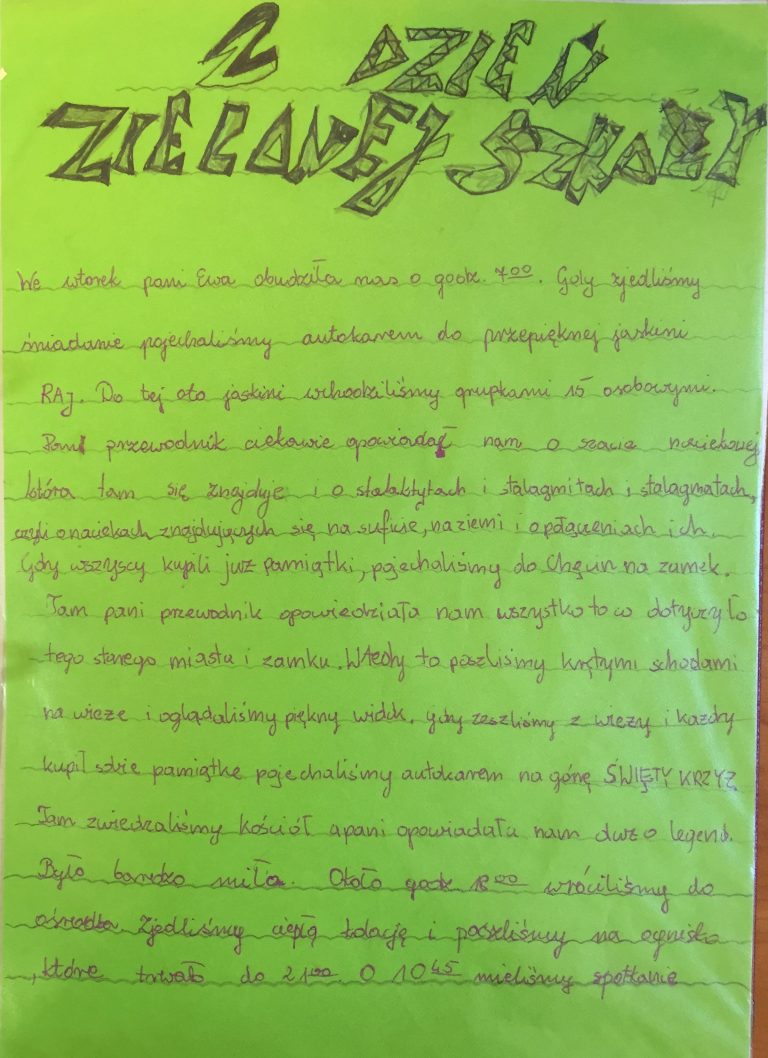 2 DZIEŃ
ZIELONEJ SZKOŁY
We wtorek pani Ewa obudziła nas o godz. 7⁰⁰. Gdy zjedliśmy
śniadanie pojechaliśmy autokarem do przepięknej jaskini
RAJ. Do tej oto jaskini wchodziliśmy grupkami 15 osobowymi.
Pani przewodnik ciekawie opowiadał nam o szacie naciekowej
która tam się znajduje i o stalaktytach i stalagmitach i stalagmatach,
czyli o naciekach znajdujących się na suficie, na ziemi i o połączeniach ich.
Gdy wszyscy kupili już pamiątki, pojechaliśmy do Chęcin na zamek.
Tam pani przewodnik opowiedziała nam wszystko to co dotyczyło
tego starego miasta i zamku. Wtedy to poszliśmy krętymi schodami
na wieże i oglądaliśmy piękny widok. Gdy zeszliśmy z wieży i każdy
kupił sobie pamiątkę pojechaliśmy autokarem na górę ŚWIĘTY KRZYŻ
Tam zwiedzaliśmy kościół a pani opowiadała nam dużo legend.
Było bardzo miło. Około godz. 18⁰⁰ wróciliśmy do
ośrodka. Zjedliśmy ciepłą kolację i poszliśmy na ognisko
, które trwało do 21⁰⁰. O 10⁴⁵ mieliśmy spotkanie